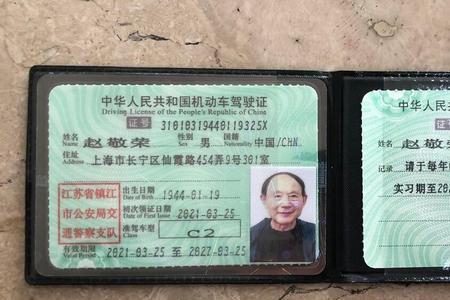 中华人民共和国机动车驾驶证
Driving License of the People's Republic of China
证号 31010319440119325X
姓名 Name 赵敬荣 性别 Sex 男 国籍 Nationality 中国/CHN
住址 Address 上海市长宁区仙霞路454弄9号301室
出生日期 Date of Birth 1944-01-19
初次领证日期 Date of First Issue 2021-03-25
准驾车型 Class C2
有效期限 Valid Period 2021-03-25 至 2027-03-25
江苏省镇江
市公安局交
通警察支队
中华人民
姓名 Name 赵敬荣
记录 请于每年
实习期至20